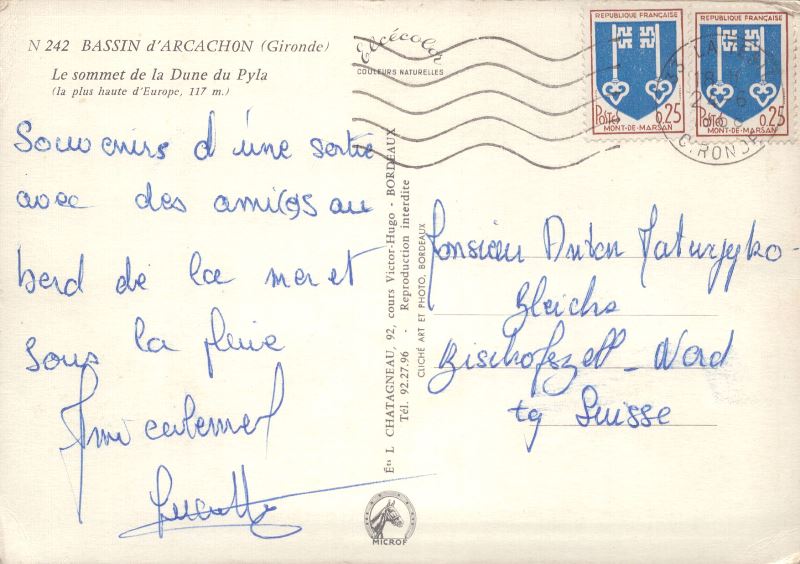 N 242 BASSIN d'ARCACHON (Gironde)
Le sommet de la Dune du Pyla
(la plus haute d'Europe, 117 m.)
Elcécolor
COULEURS NATURELLES
Souvenirs d'une sortie
avec des ami(e)s au
bord de la mer et
sous la pluie
Amicalement
Ets L. CHATAGNEAU, 92, cours Victor-Hugo - BORDEAUX
Tél. 92.27.96 - Reproduction interdite
CLICHÉ ART ET PHOTO, BORDEAUX
RÉPUBLIQUE FRANÇAISE
Postes 0,25
MONT-DE-MARSAN
RÉPUBLIQUE FRANÇAISE
Postes 0,25
MONT-DE-MARSAN
GIRONDE
Monsieur Anton
Bleiche
Bischofszell - Nord
tg Suisse
MICROF